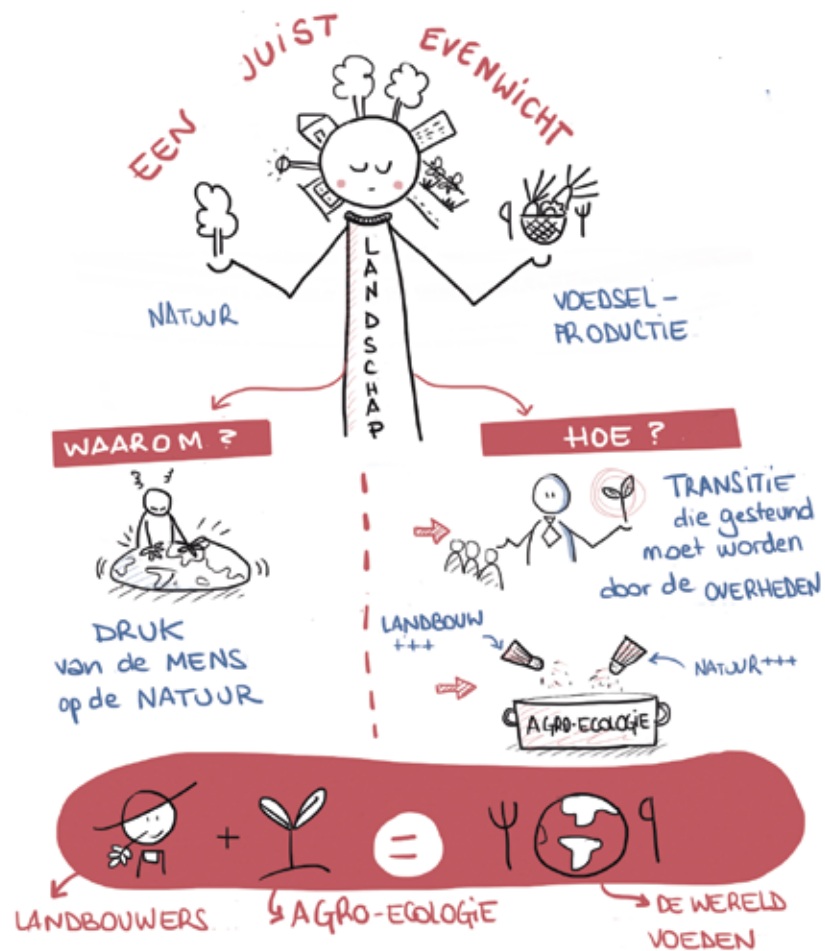 EEN JUIST EVENWICHT
NATUUR
LANDSCHAP
VOEDSEL-
PRODUCTIE
WAAROM ?
DRUK
van de MENS
op de NATUUR
HOE ?
TRANSITIE
die gesteund
moet worden
door de OVERHEDEN
LANDBOUW
+++
NATUUR+++
AGRO-ECOLOGIE
+ =
LANDBOUWERS
AGRO-ECOLOGIE
DE WERELD
VOEDEN